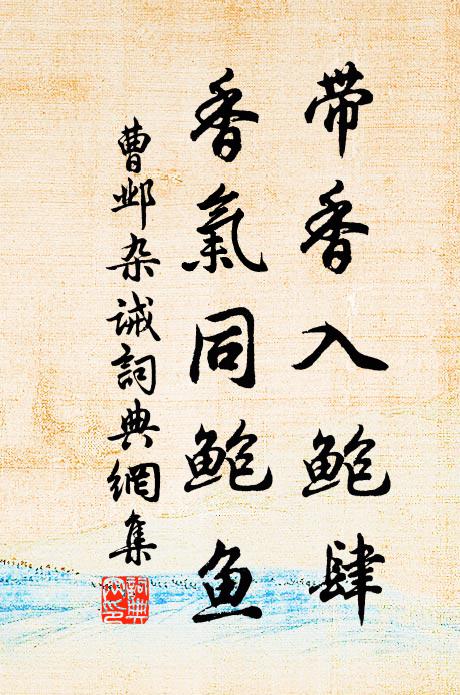 带香入鲍肆
香氣同鲍鱼
曹邺杂诫詞典網集